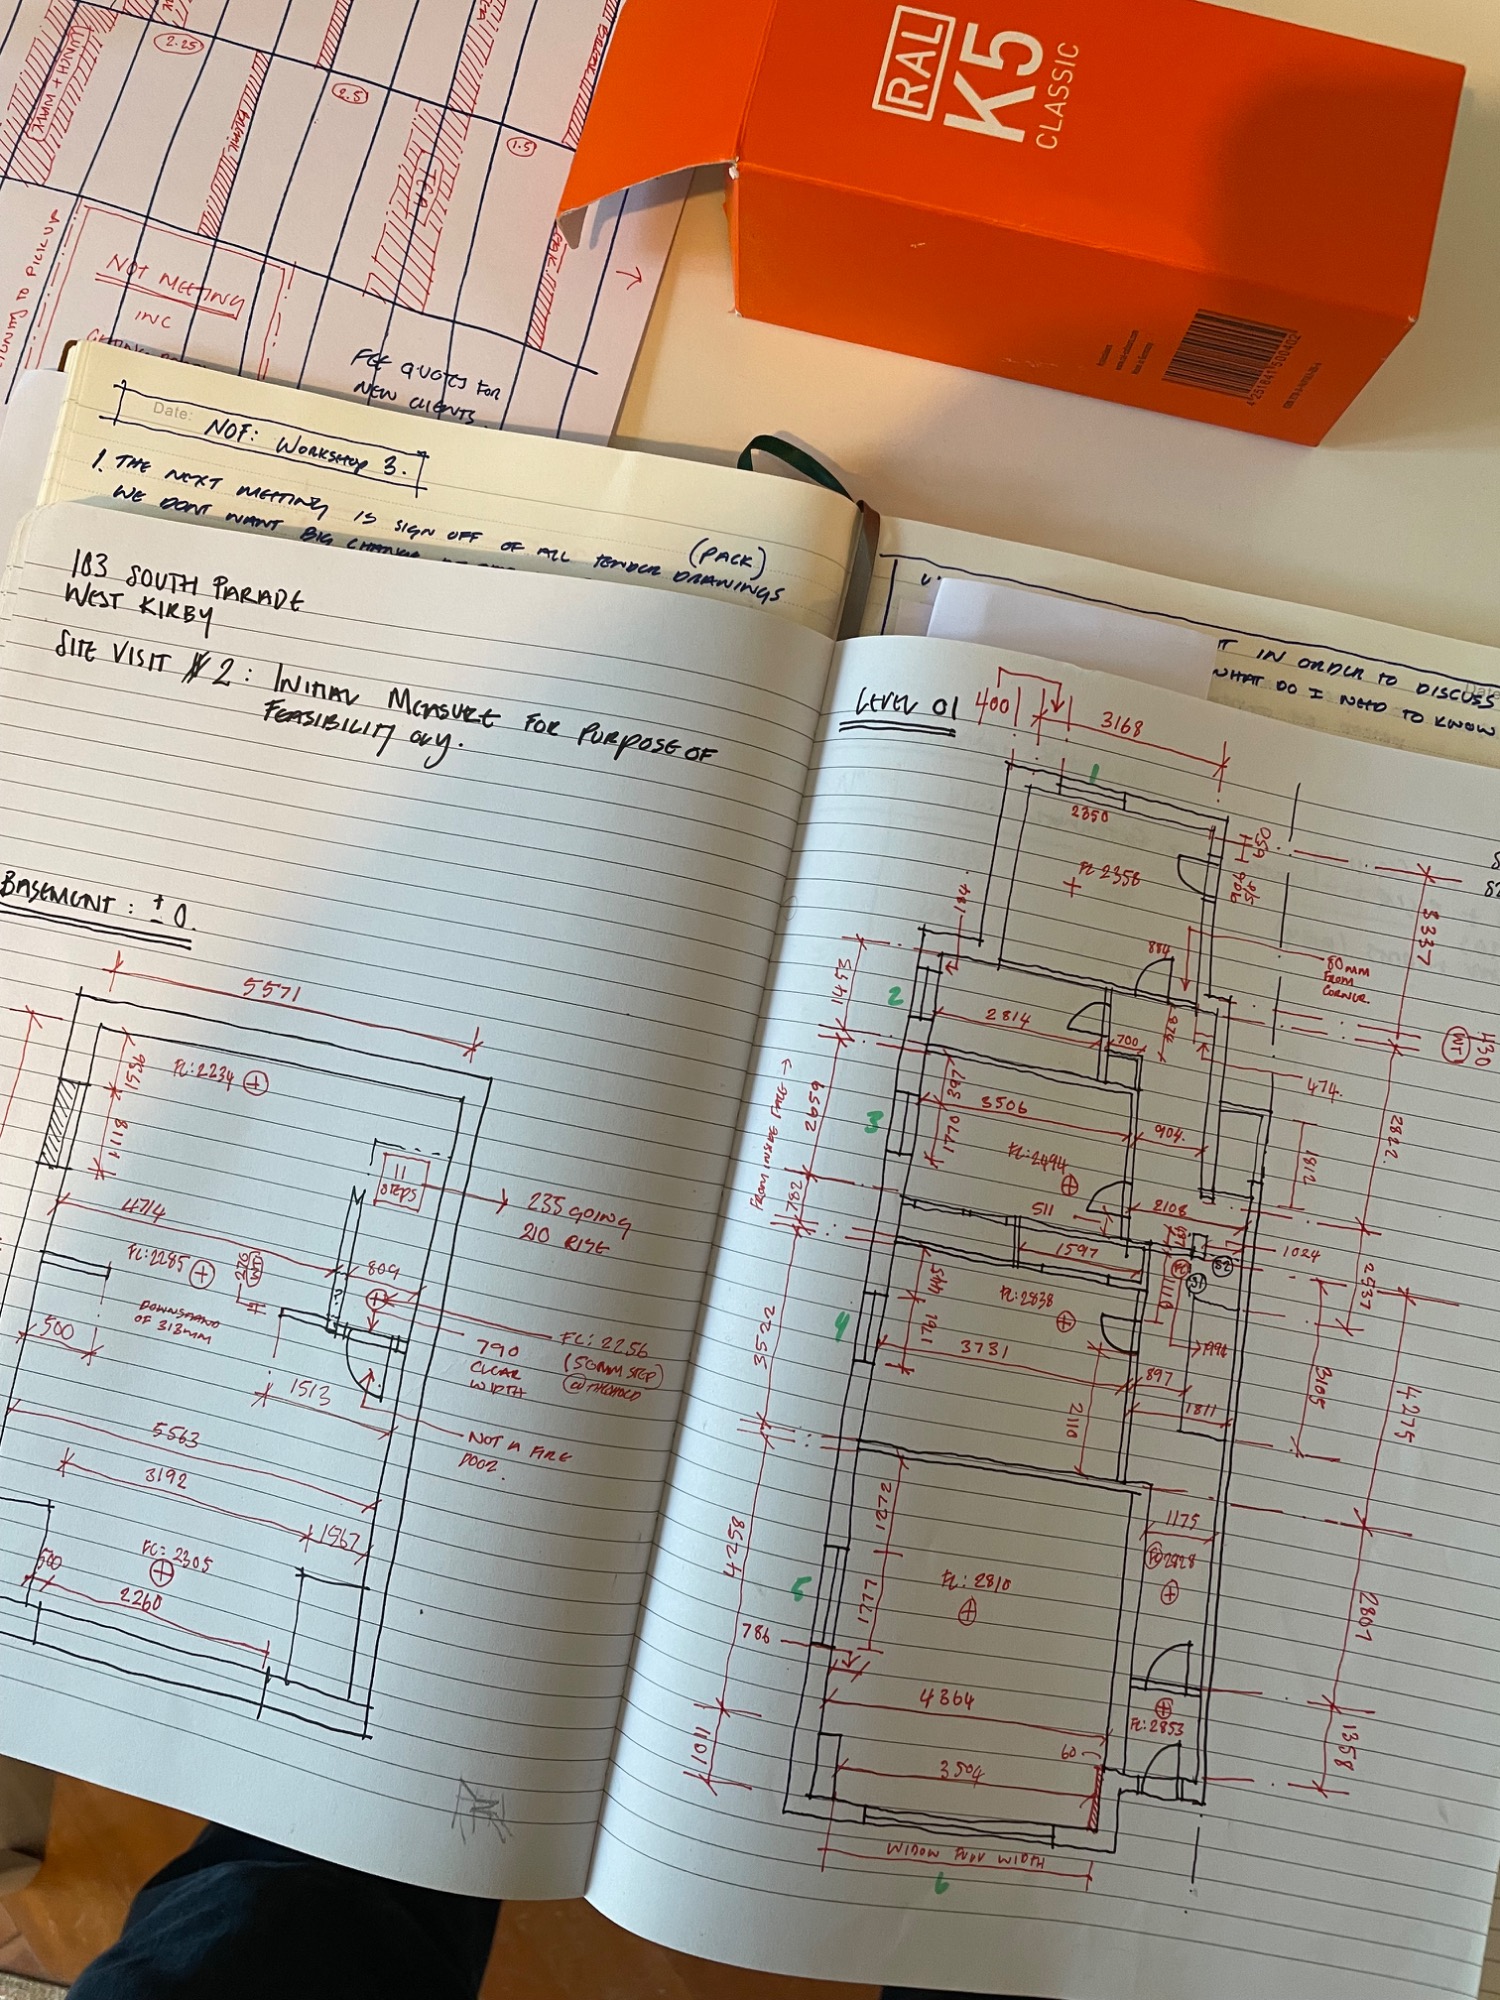 2.25
2.5
1.5
LUNCH + WALK
NOT MEETING
INC
FEE QUOTES FOR
NEW CLIENTS.
RAL
K5
CLASSIC
4 251841 500402
Date:
NOF: WORKSHOP 3.
1. THE NEXT MEETING IS SIGN OFF OF ALL TENDER DRAWINGS (PACK)
WE DONT WANT BIG CHANGE
IT IN ORDER TO DISCUSS
WHAT DO I NEED TO KNOW
183 SOUTH PARADE
WEST KIRBY
SITE VISIT # 2 : INITIAL MEASURE FOR PURPOSE OF
FEASIBILITY ONLY.
BASEMENT : ± 0.
5571
FC: 2234
1598
1118
11
STEPS
235 GOING
210 RISE
4714
FC: 2285
276
809
DOWNSTAND
OF 313MM
500
790
CLEAR
WIDTH
FC: 2256
(50MM STEP)
@ THRESHOLD
1513
NOT A FIRE
DOOR.
5563
3192
1567
FC: 2305
500
2260
N
LEVEL 01
400
3168
1
2350
FC: 2358
650
906
3337
184
884
80MM
FROM
CORNER.
1453
2
2814
700
974
474.
430
WT
FROM INSIDE FACE →
2659
397
3506
3
1770
904.
FC: 2494
2822.
1812
782
511
2108
1597
1024
S2
S1
445
FC: 2838
1110
2537
4
1761
3522
3731
897
1811
3105
4275
2110
1272
4258
1175
FC 2828
5
1777
FC: 2810
786
2807
4364
FC: 2853
1011
60
3504
1358
WIDOW FULL WIDTH
6